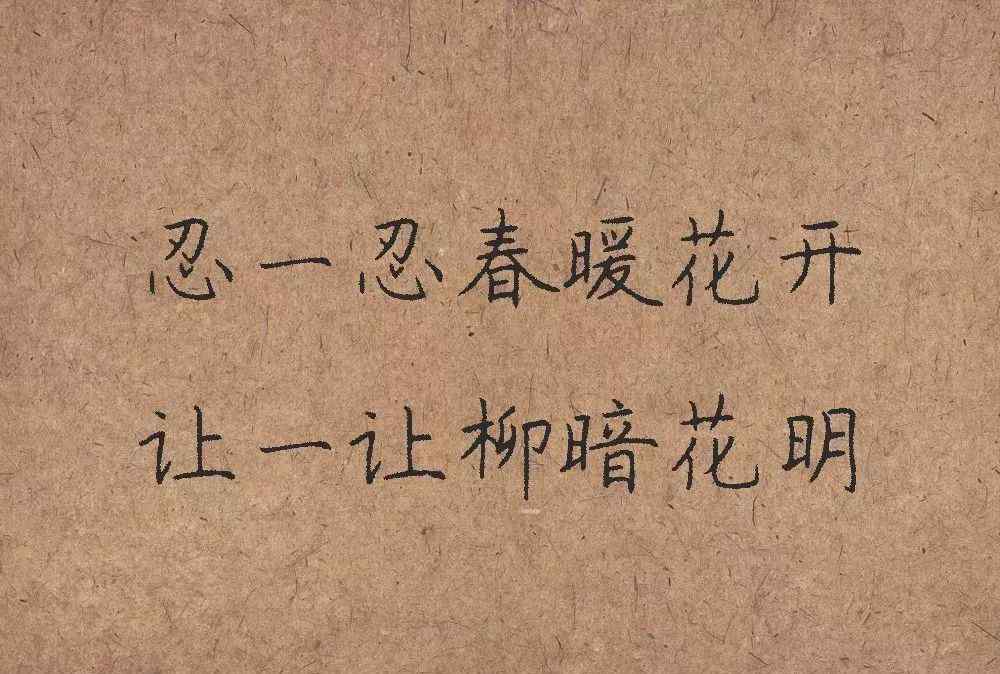 忍一忍春暖花开
让一让柳暗花明